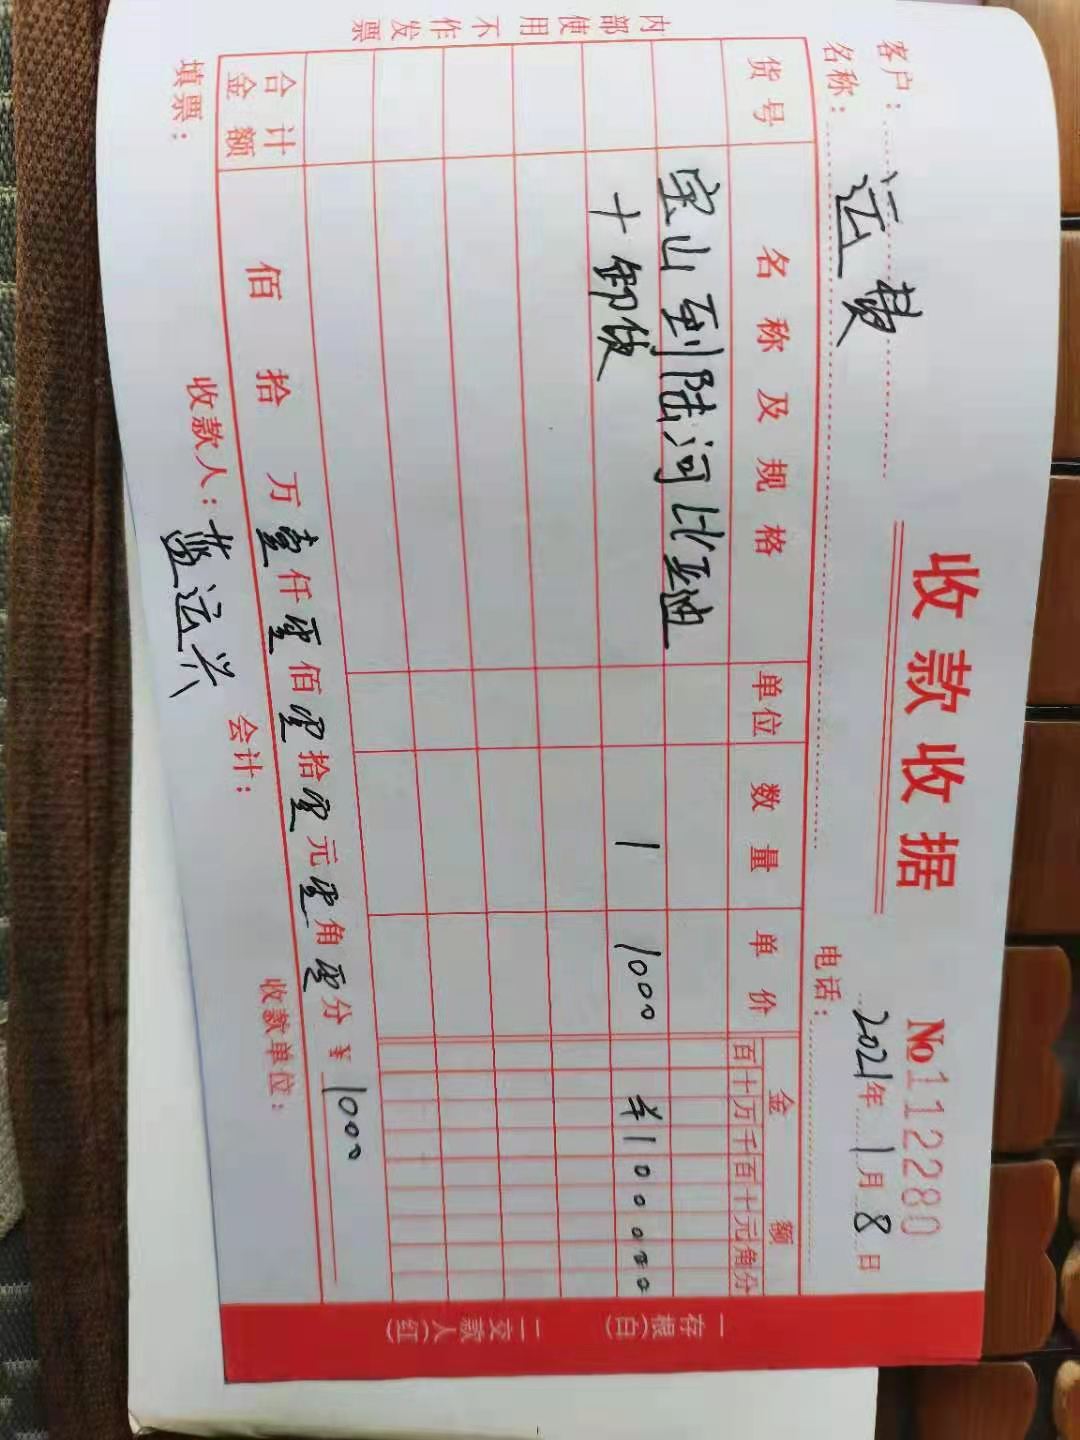 收款收据
No 1122280
客户名称：运费
2021年1月8日
电话：
货号 名称及规格 单位 数量 单价 金额
百十万千百十元角分
宝山到陆河比亚迪
十卸货 1 1000 ¥100000
合计金额 佰拾万壹仟零佰零拾零元零角零分 ¥1000
填票： 收款人：蓝运兴 会计： 收款单位：
内部使用不作发票
一存根(白) 二交款人(红)